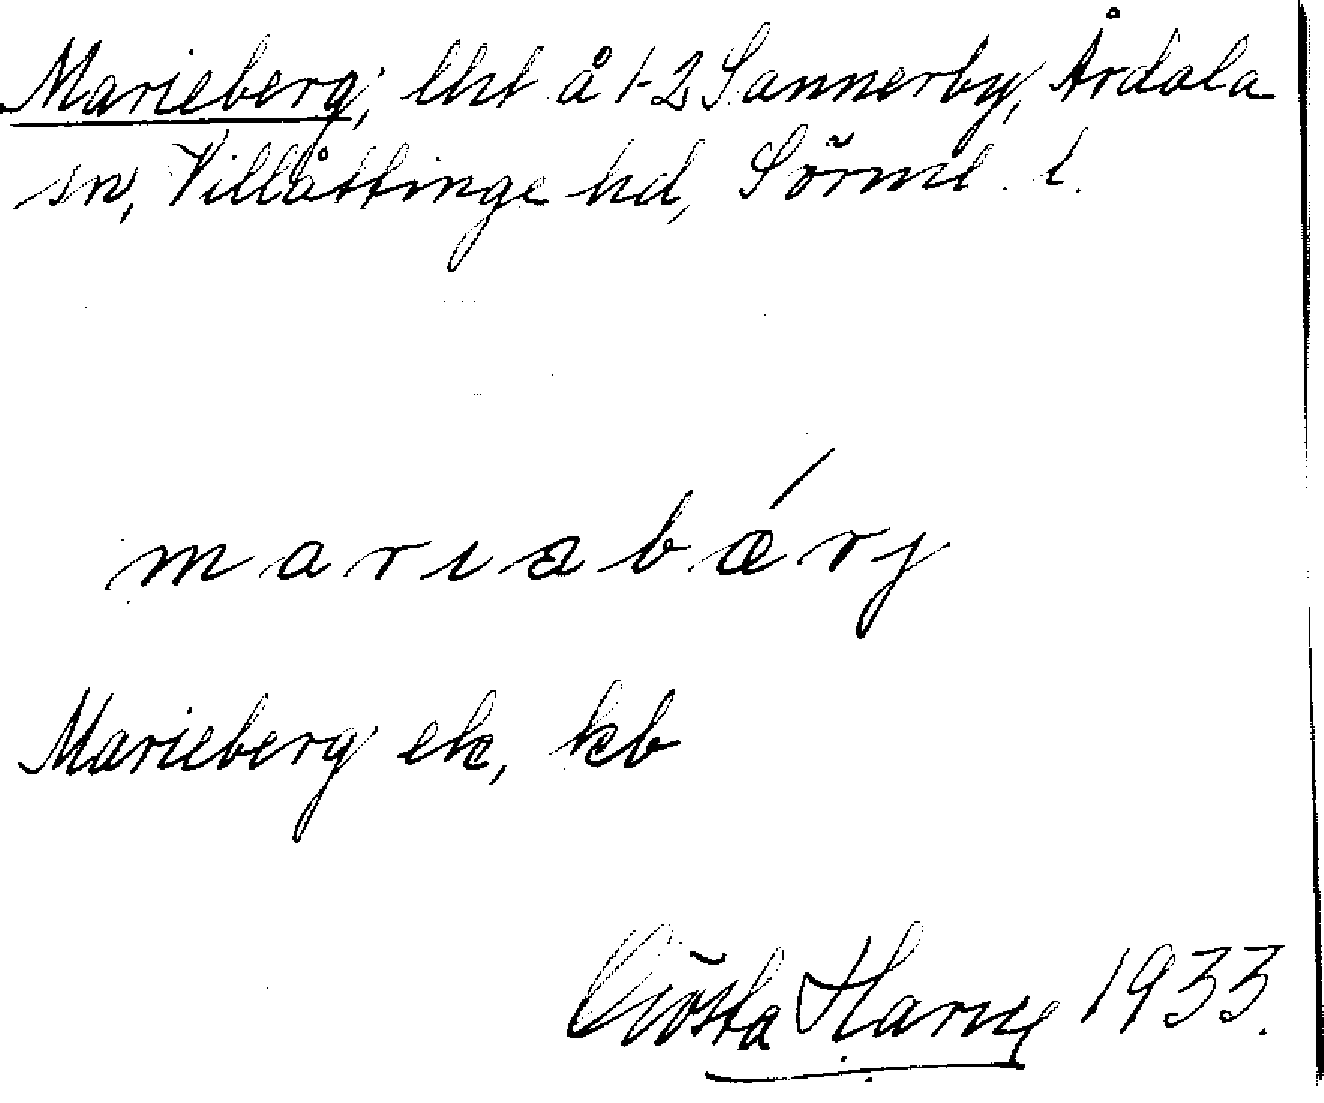 Marieberg, lht å 1-2 Sannerby, Årdala
sn, Villåttinge hd, Sörml. l.
mariabǽrj
Marieberg ek, kb
Gösta 1933.